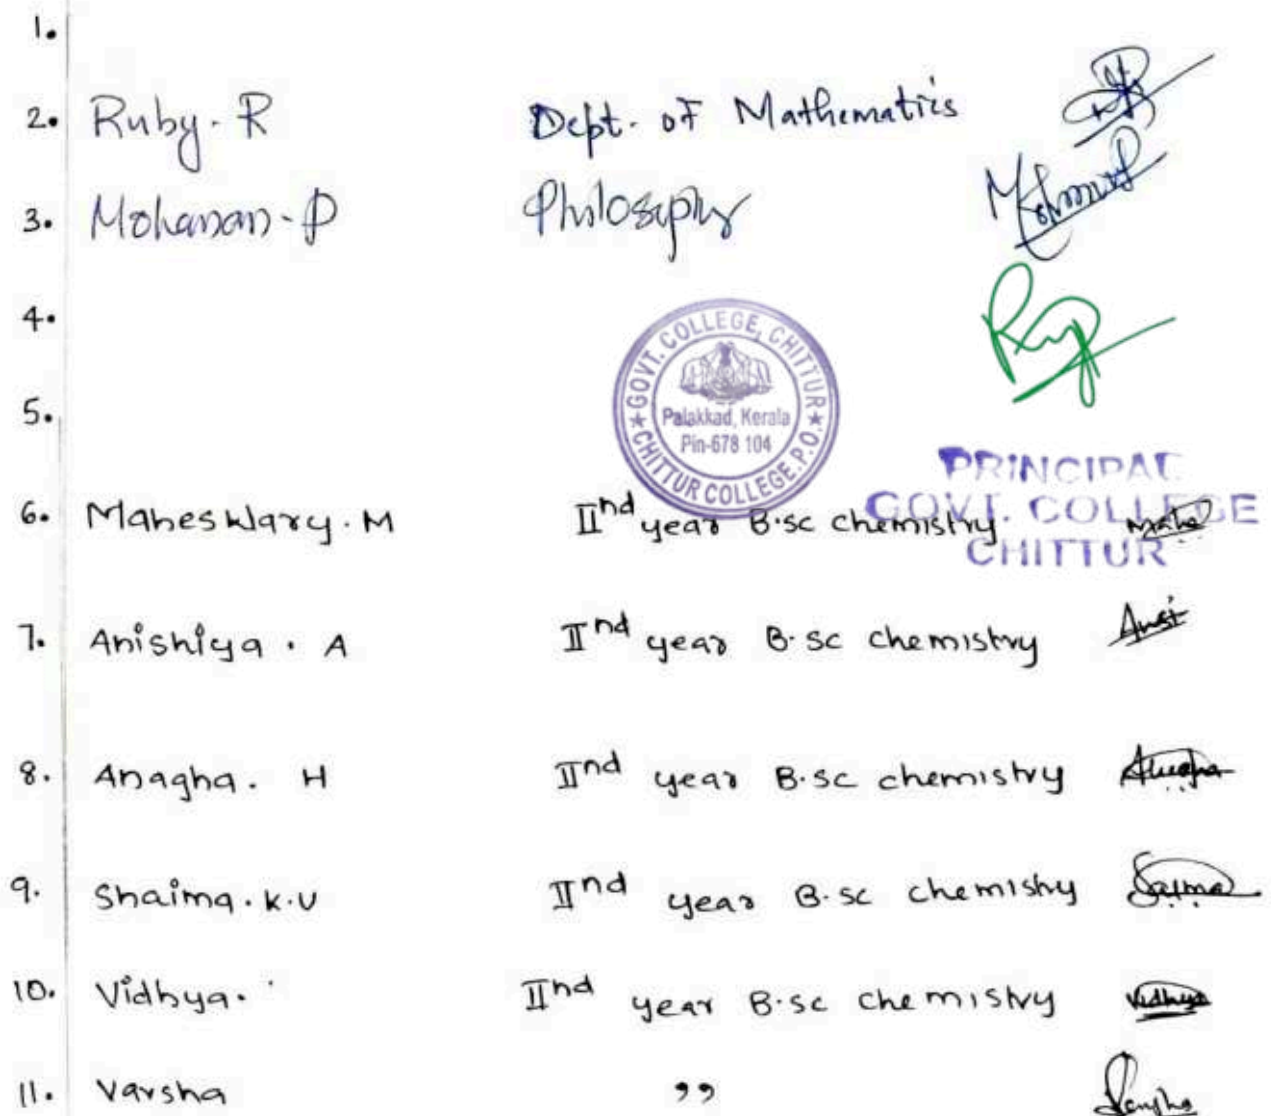 1.
2. Ruby. R Dept. of Mathematics
3. Mohanan. P Philosophy
4.
GOVT. COLLEGE, CHITTUR
Palakkad, Kerala
Pin-678 104
CHITTUR COLLEGE.P.O.
5.
PRINCIPAL
GOVT. COLLEGE
CHITTUR
6. Maheswary. M IInd year B.sc chemistry Mahe
7. Anishiya. A IInd year B.sc chemistry
8. Anagha. H IInd year B.sc chemistry
9. Shaima. K.U IInd year B.sc chemistry
10. Vidhya. IInd year B.sc chemistry Vidhya
11. Varsha ,,